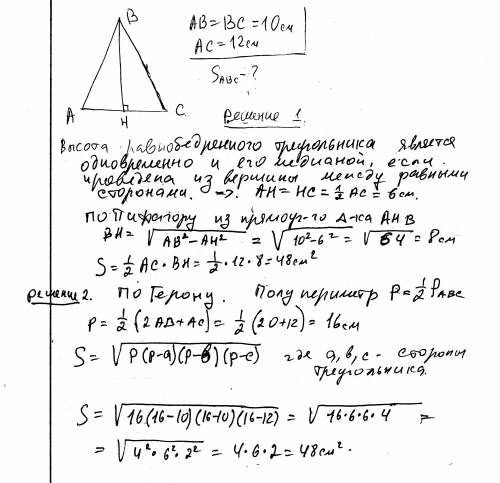 B
AB = BC = 10см
AC = 12см
S ABC - ?
A H C
Решение 1.
Высота равнобедренного треугольника является
одновременно и его медианой, если
проведена из вершины между равными
сторонами. -> AH = HC = 1/2 AC = 6см.
По Пифагору из прямоуг-го Δ-ка AHB
BH = √(AB² - AH²) = √(10² - 6²) = √64 = 8см
S = 1/2 AC · BH = 1/2 · 12 · 8 = 48см²
решение 2. По Герону. Полупериметр P = 1/2 P ABC
P = 1/2 (2AB + AC) = 1/2 (20 + 12) = 16см
S = √(P(P-a)(P-b)(P-c)) где a, b, c - стороны
треугольника.
S = √(16(16-10)(16-10)(16-12)) = √(16·6·6·4) =
= √(4²·6²·2²) = 4·6·2 = 48см².